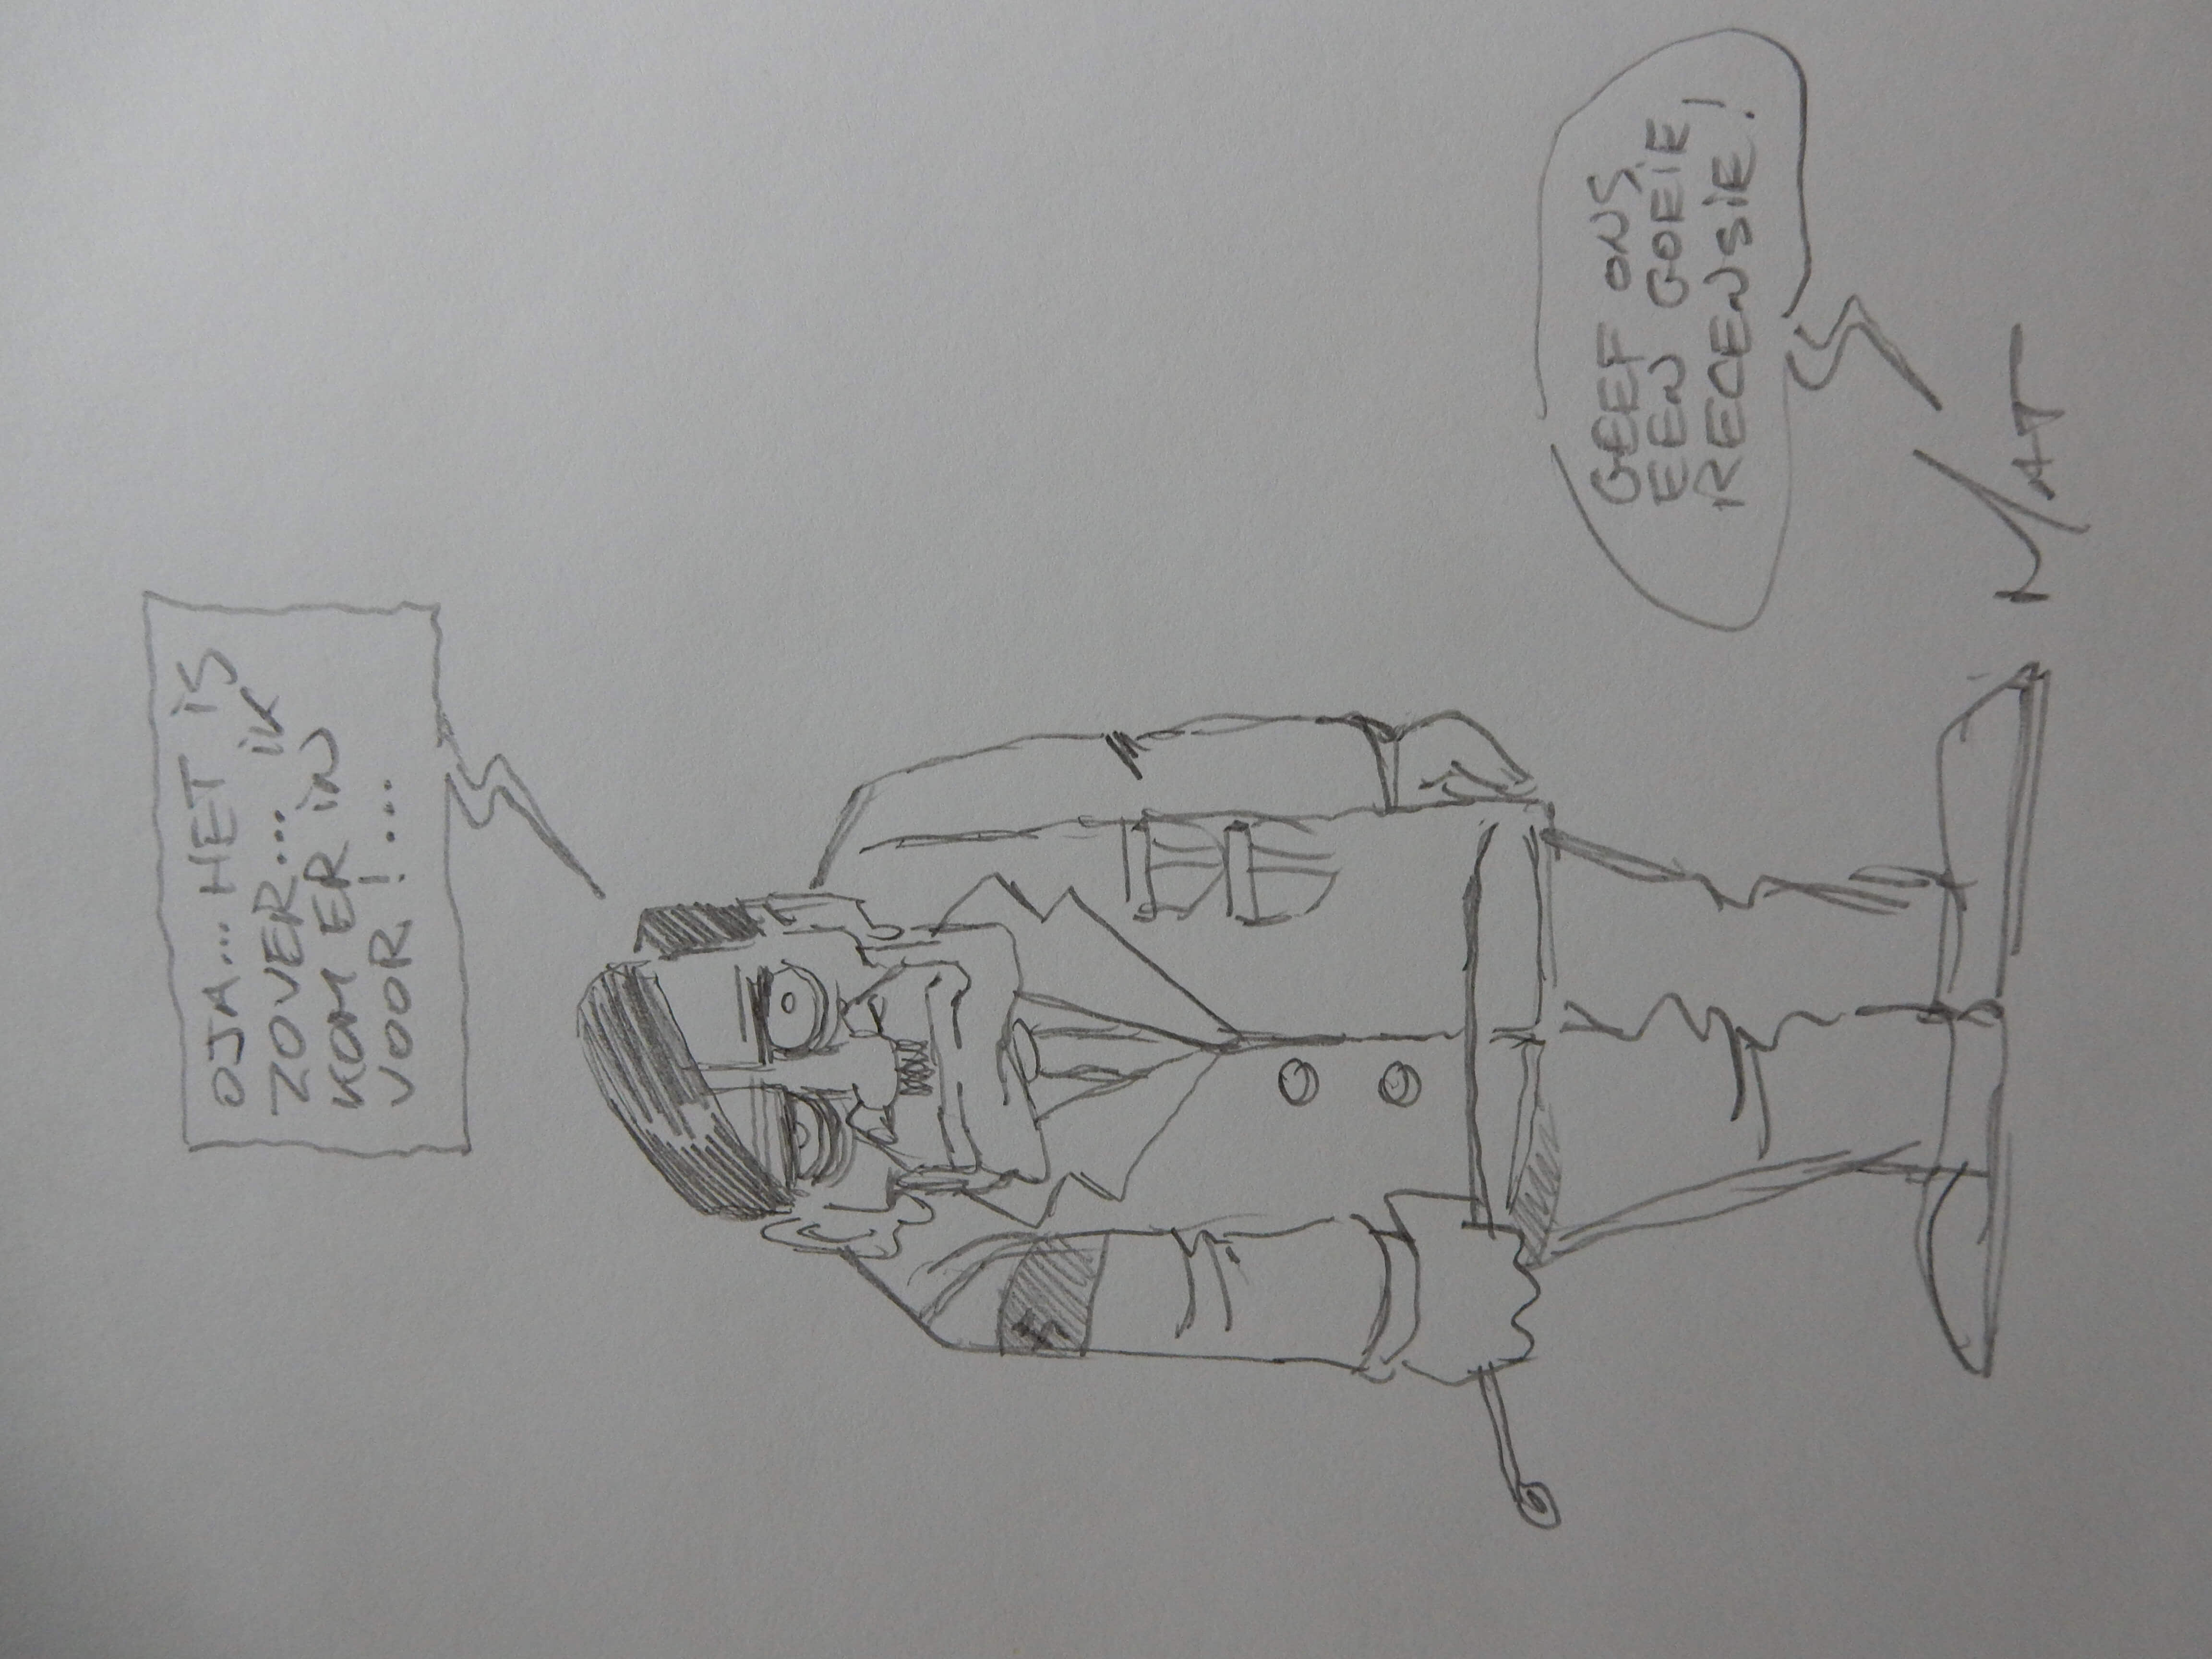 OJA... HET iS
ZOVER... iK
KOM ER iN
VOOR!...
GEEF ONS
EEN GOEiE
RECENSiE!
MAT